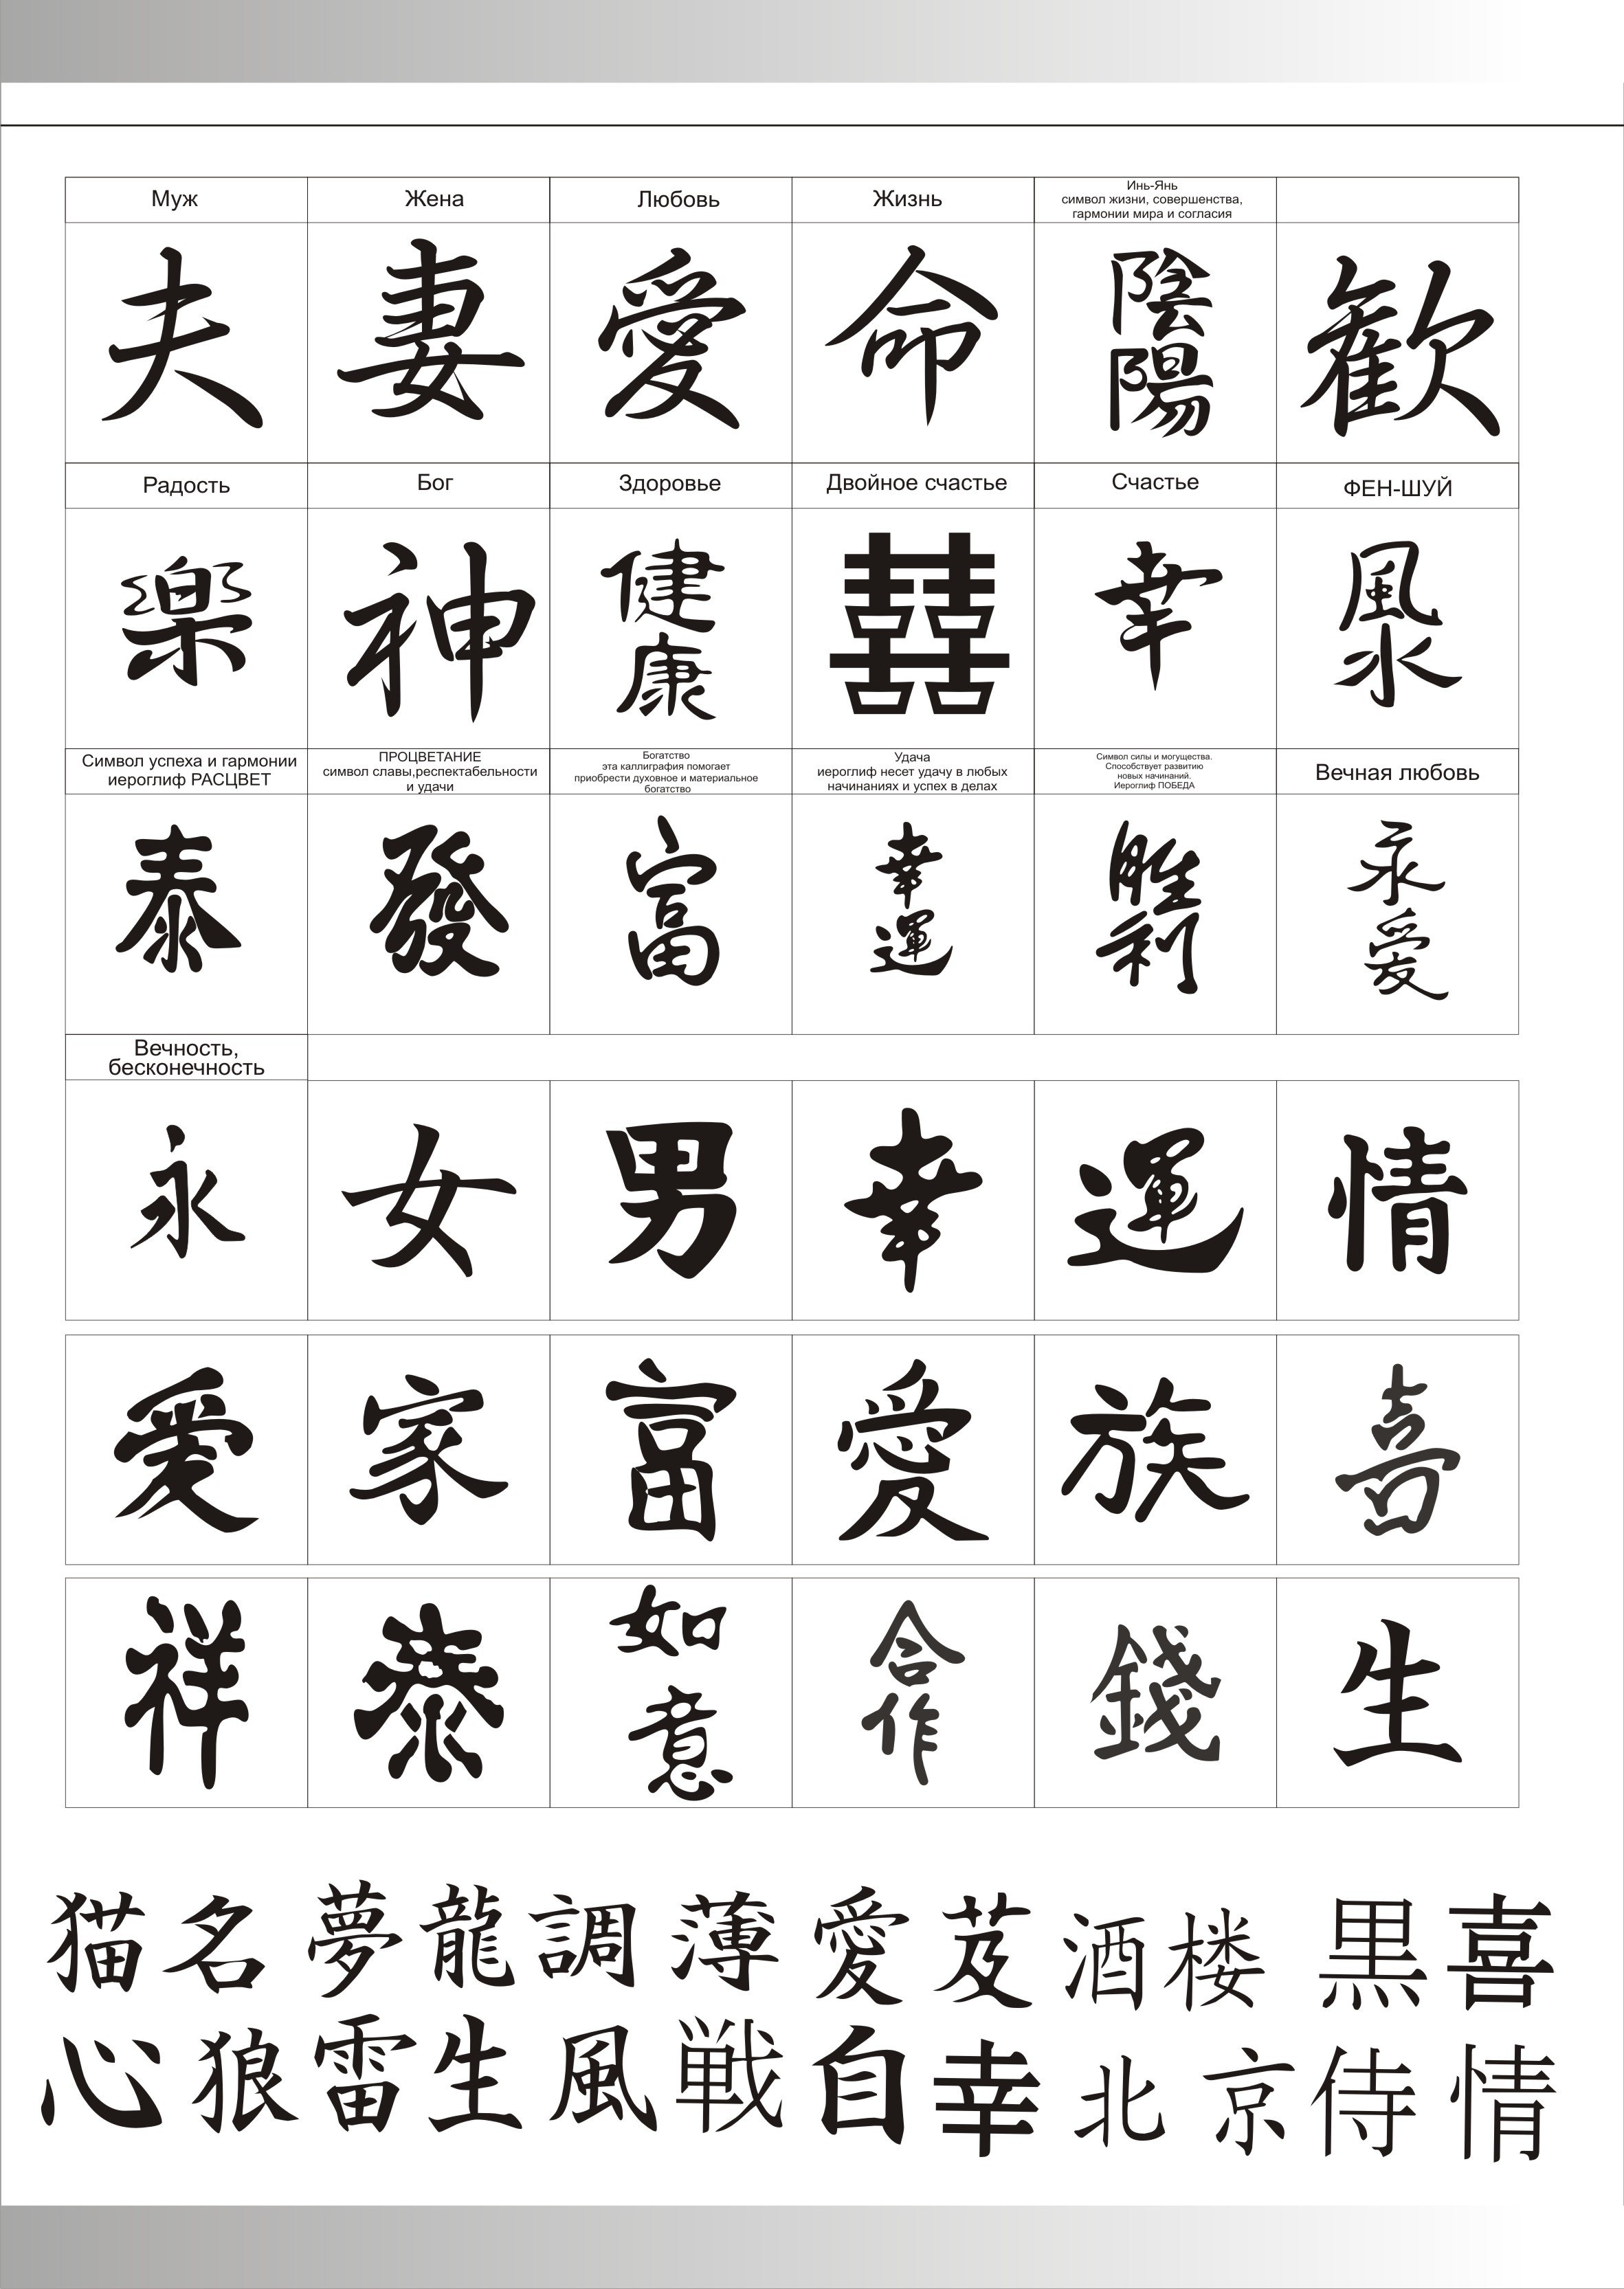 Муж Жена Любовь Жизнь Инь-Янь
символ жизни, совершенства,
гармонии мира и согласия
夫 妻 愛 命 陰陽 歓
Радость Бог Здоровье Двойное счастье Счастье ФЕН-ШУЙ
楽 神 健康 囍 幸 風水
Символ успеха и гармонии
иероглиф РАСЦВЕТ
ПРОЦВЕТАНИЕ
символ славы,респектабельности
и удачи
Богатство
эта каллиграфия помогает
приобрести духовное и материальное
богатство
Удача
иероглиф несет удачу в любых
начинаниях и успех в делах
Символ силы и могущества.
Способствует развитию
новых начинаний.
Иероглиф ПОБЕДА
Вечная любовь
泰 發 富 幸運 胜利 永愛
Вечность,
бесконечность
永 女 男 幸 運 情
愛 家 富 愛 族 喜
祥 泰 如意 合作 錢 生
猫 名 夢 龍 調 薄 愛 芨 酒 楼 黒 喜
心 狼 雷 生 風 戦 自 幸 北 京 侍 情